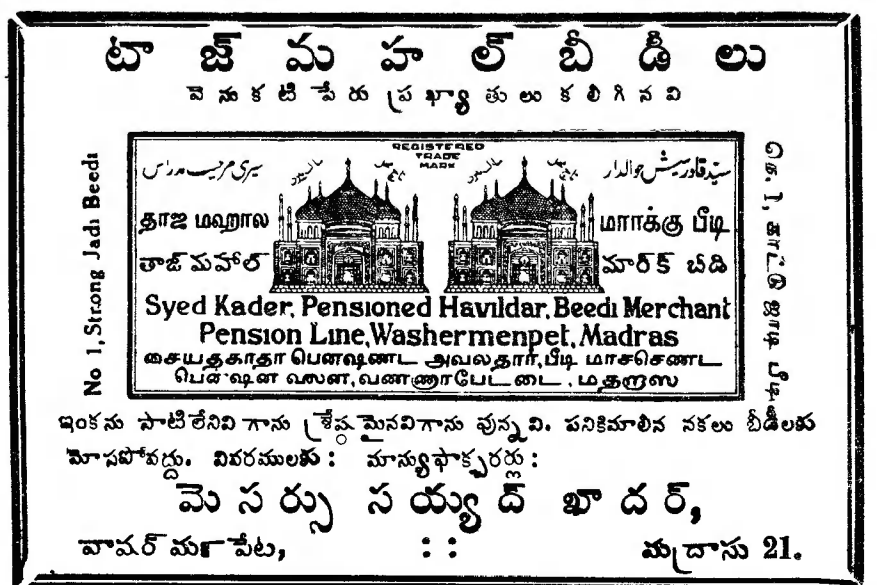 టాజ్ మహల్ బీడీలు
వెనుకటి పేరు ప్రఖ్యాతులు కలిగినవి
No 1, Strong Jadi Beedi
REGISTERED
TRADE
MARK
தாஜ மஹால மார்க்கு பீடி
తాజ్ మహాల్ మార్క్ బీడి
Syed Kader, Pensioned Havildar, Beedi Merchant
Pension Line, Washermenpet, Madras
சையத்காதா பென்ஷண்ட அவலதார், பீடி மாசசெண்ட
பென்ஷன் லைன, வண்ணாபேட்டை, மதறாஸ
நெ. 1, காட்டு ஜாடி பீடி
ఇంకను సాటిలేనివి గాను శ్రేష్ఠమైనవిగాను వున్నవి. పనికిమాలిన నకలు బీడీలకు
మోసపోవద్దు. వివరములకు : మాన్యుఫాక్చరర్లు :
మెసర్సు సయ్యద్ ఖాదర్,
వాషర్ మన్ పేట, : : మద్రాసు 21.